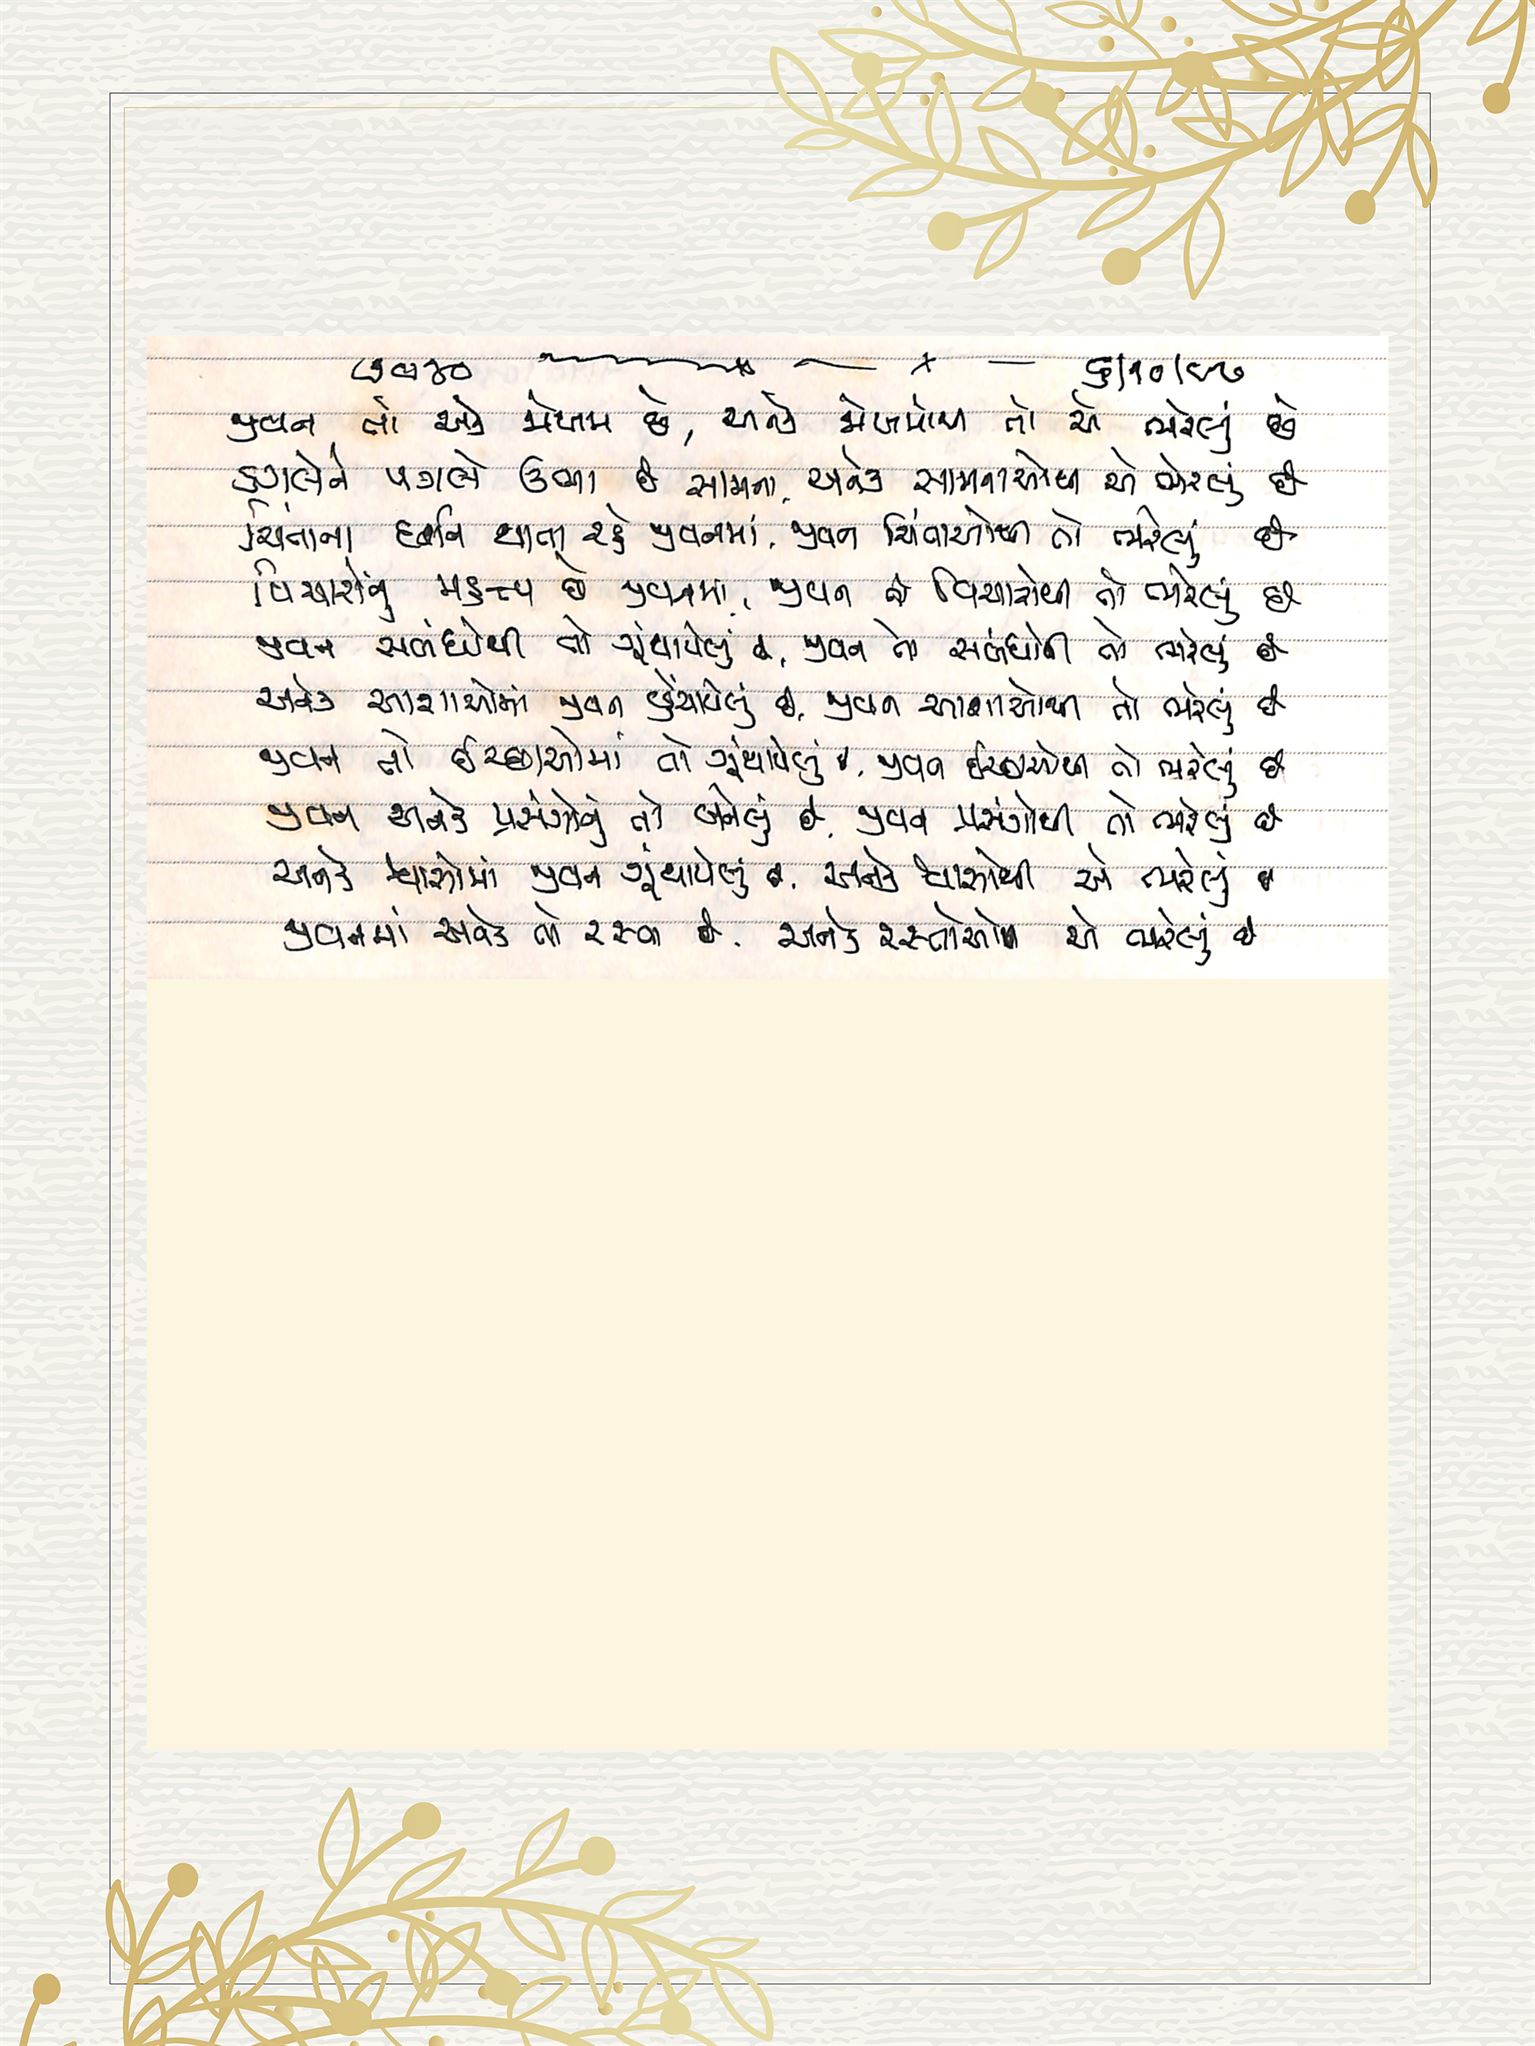 જીવન તો એક જોખમ છે, અનેક જોખમોથી તો એ ભરેલું છે
ડગલેને પગલે ઉભા છે સામના, અનેક સામનાઓથી એ ભરેલું છે
ચિંતાના દર્શન થાતા રહે જીવનમાં, જીવન ચિંતાઓથી તો ભરેલું છે
વિચારોનું મહત્ત્વ છે જીવનમાં, જીવન વિચારોથી તો ભરેલું છે
જીવન સબંધોથી તો ગૂંથાયેલું છે, જીવન તો સબંધોથી તો ભરેલું છે
અનેક આશાઓમાં જીવન ગૂંથાયેલું છે, જીવન આશાઓથી તો ભરેલું છે
જીવન તો ઈચ્છાઓમાં તો ગૂંથાયેલું છે, જીવન ઈચ્છાઓથી તો ભરેલું છે
જીવન અનેક પ્રસંગોનું તો બનેલું છે, જીવન પ્રસંગોથી તો ભરેલું છે
અનેક શ્વાસોમાં જીવન ગૂંથાયેલું છે, અનેક શ્વાસોથી એ ભરેલું છે
જીવનમાં અનેક તો રસ્તા છે, અનેક રસ્તાઓથી એ ભરેલું છે